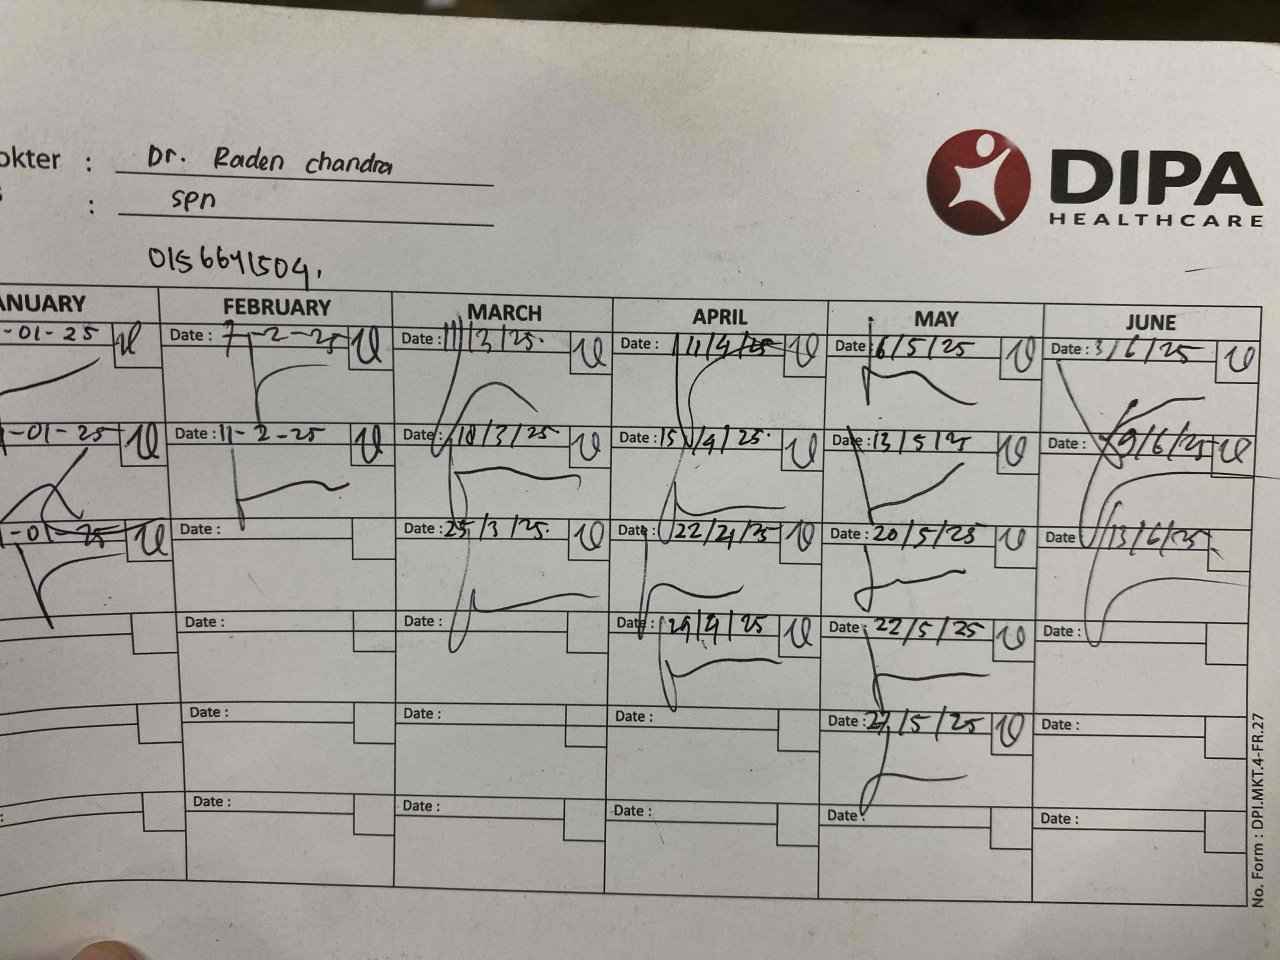 okter : Dr. Raden chandra
DIPA
HEALTHCARE
: spn
0156641504.
ANUARY FEBRUARY MARCH APRIL MAY JUNE
-01-25 Date : 7-2-25 Date : 11/3/25. Date : 11/4/25 Date 6/5/25 Date : 3/6/25
-01-25 Date : 11-2-25 Date : 18/3/25 Date : 15/4/25. Date : 13/5/25 Date : 9/6/25
-01-25 Date : Date : 25/3/25. Date : 22/4/25 Date : 20/5/25 Date 13/6/25
Date : Date : Date : 29/4/25 Date : 22/5/25 Date :
Date : Date : Date : Date : 27/5/25 Date :
: Date : Date : Date : Date : Date :
No. Form : DPI.MKT.4-FR.27